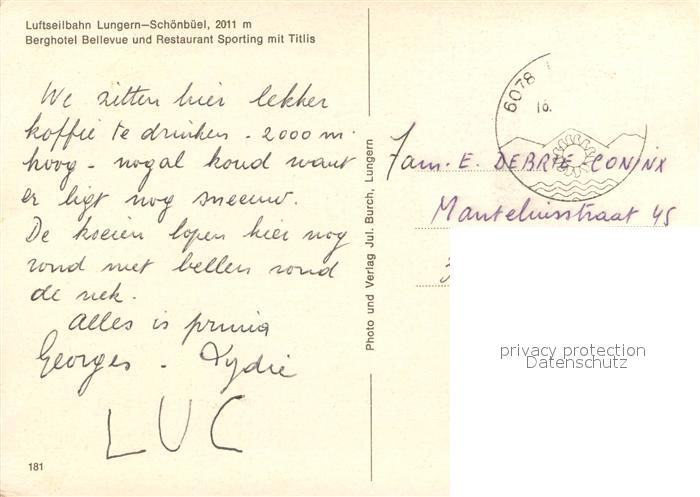 Luftseilbahn Lungern—Schönbüel, 2011 m
Berghotel Bellevue und Restaurant Sporting mit Titlis
We zitten hier lekker
koffie te drinken - 2000 m.
hoog - nogal koud want
er ligt nog sneeuw.
De koeien lopen hier nog
rond met bellen rond
de nek.
Alles is prima
Georges - Lydie
LUC
181
Photo und Verlag Jul. Burch, Lungern
6078
16.
Fam. E. DEBRIE-CONINX
Manteliusstraat 45
privacy protection
Datenschutz